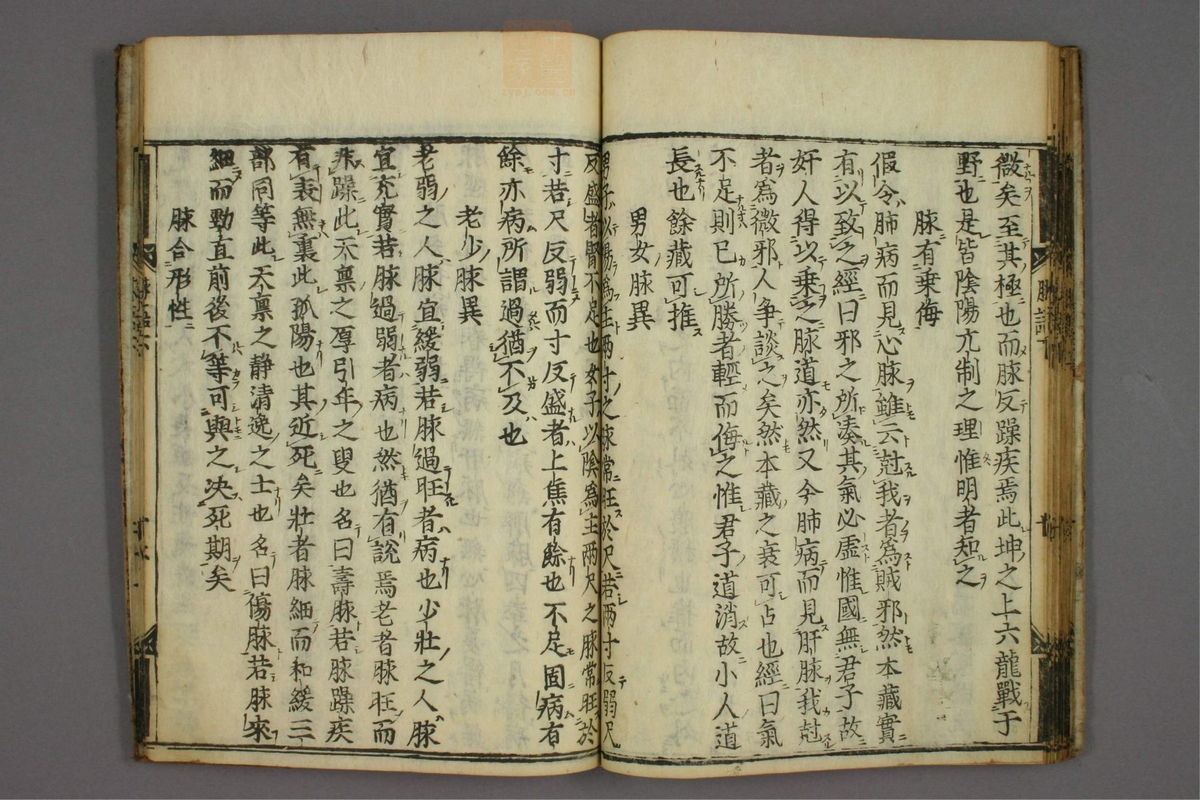 微矣至其極也而脉反躁疾焉此坤之上六龍戰于
野也是皆陰陽亢制之理惟明者知之
脉有乗侮
假令肺病而見心脉雖云尅我者為賊邪然本藏實
有以致之經曰邪之所凑其氣必虚惟國無君子故
奸人得以乗之脉道亦然又今肺病而見肝脉我尅
者為微邪人争談之矣然本藏之衰可占也經曰氣
不足則已所勝者輕而侮之惟君子道消故小人道
長也餘藏可推
男女脉異
男子以陽為主两寸之脉常旺於尺若两寸反弱尺
反盛者腎不足也女子以陰為主兩尺之脉常旺於
寸若尺反弱而寸反盛者上焦有餘也不足固病有
餘亦病所謂過猶不及也
老少脉異
老弱之人脉宜緩弱若脉過旺者病也少壮之人脉
宜充實若脉過弱者病也然猶有說焉老者脉旺而
非躁此天禀之厚引年之叟也名曰壽脉若脉躁疾
有表無裏此孤陽也其近死矣壮者脉細而和緩三
部同等此天禀之静清逸之士也名曰傷脉若脉來
細而勁直前後不等可與之决死期矣
脉合形性